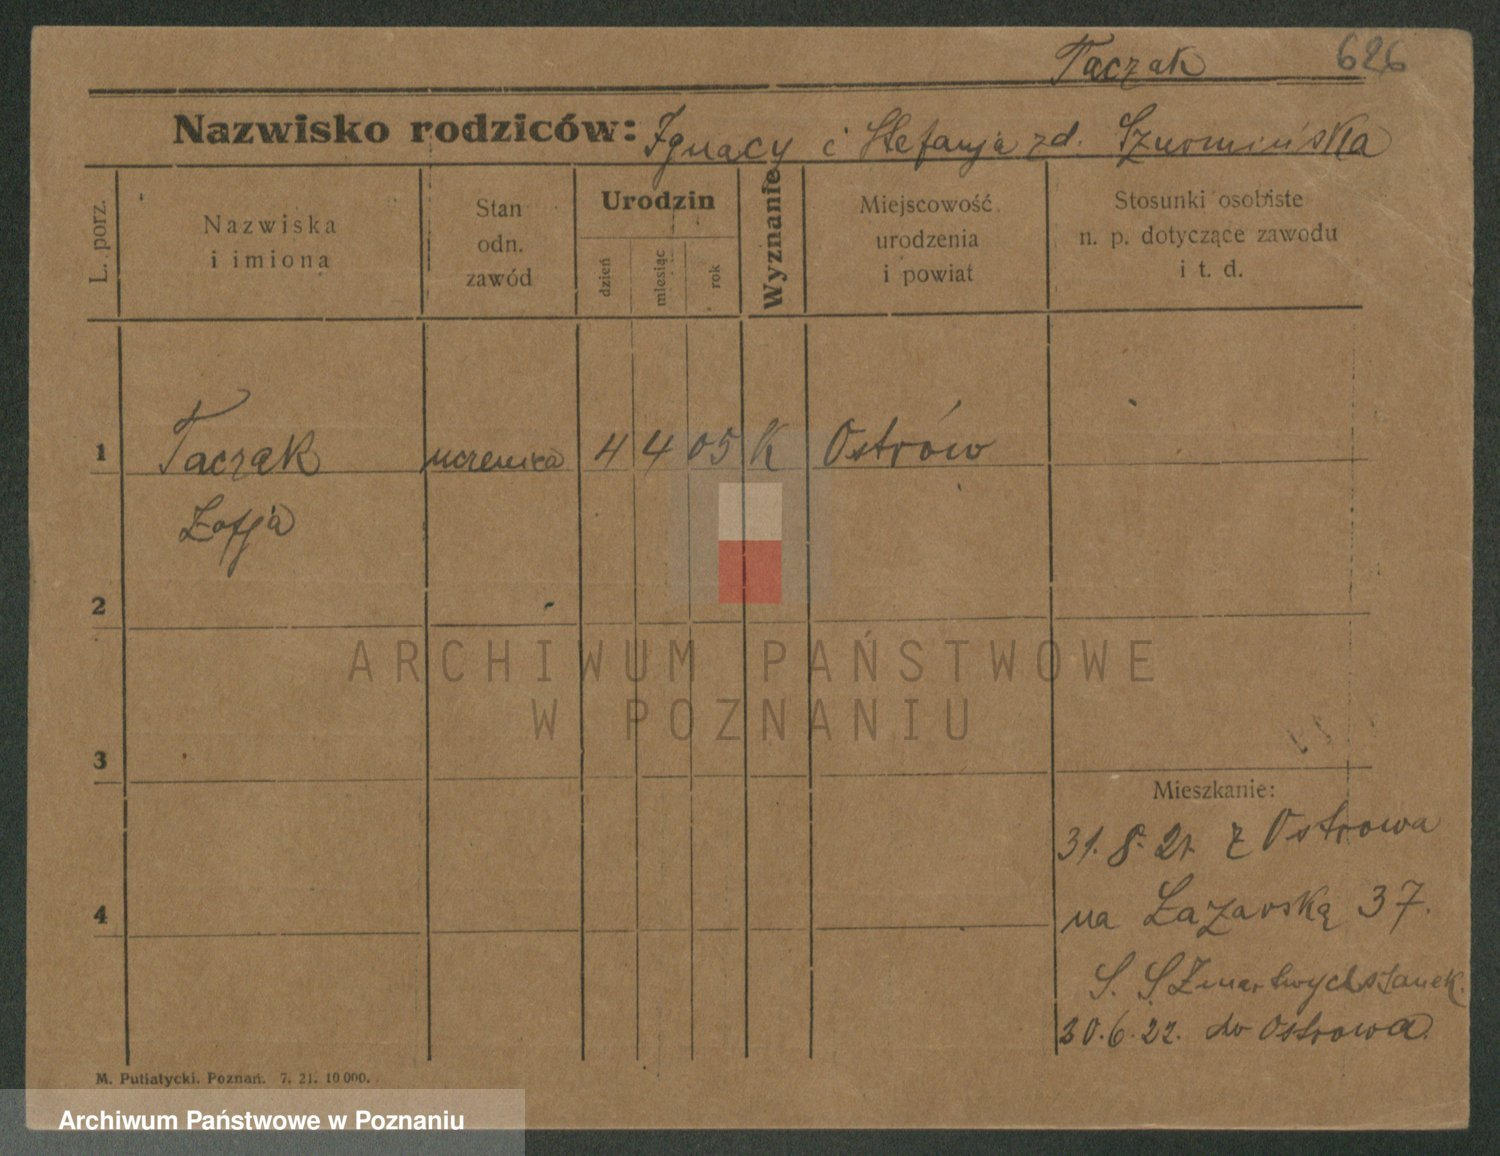 Taczak 626
Nazwisko rodziców: Ignacy i Stefanja zd. Szurmińska
L. porz.
Nazwiska i imiona
Stan odn. zawód
Urodzin
dzień
miesiąc
rok
Wyznanie
Miejscowość urodzenia i powiat
Stosunki osobiste n. p. dotyczące zawodu i t. d.
1 Taczak uczenica 4 4 05 K Ostrów
Zofja
2
ARCHIWUM PAŃSTWOWE
W POZNANIU
3
Mieszkanie:
31. 8. 21. z Ostrowa
4
na Łazarską 37.
S. S. Zmartwychstanek.
30. 6. 22. do Ostrowa.
M. Putiatycki. Poznań. 7. 21. 10 000.
Archiwum Państwowe w Poznaniu